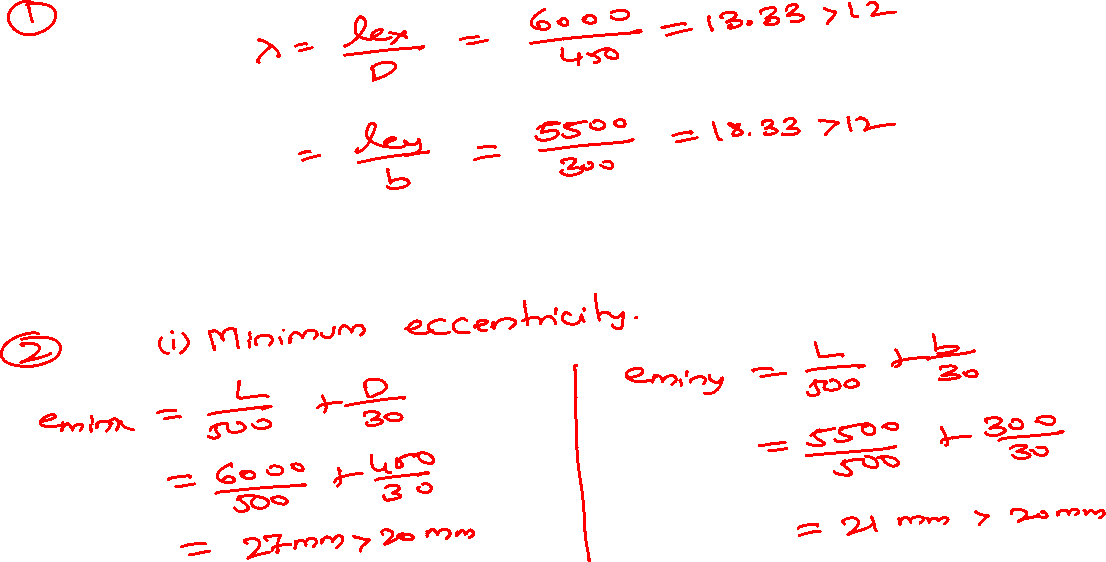 ① λ = lex/D = 6000/450 = 13.33 > 12
= ley/b = 5500/300 = 18.33 > 12
② (i) Minimum eccentricity.
eminx = L/500 + D/30
= 6000/500 + 450/30
= 27mm > 20 mm
eminy = L/500 + b/30
= 5500/500 + 300/30
= 21 mm > 20 mm